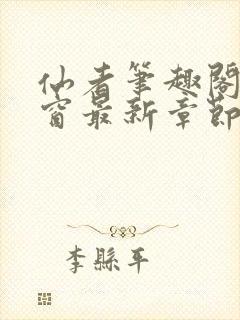 仙者筆趣閣
窗最新章節
李縣平